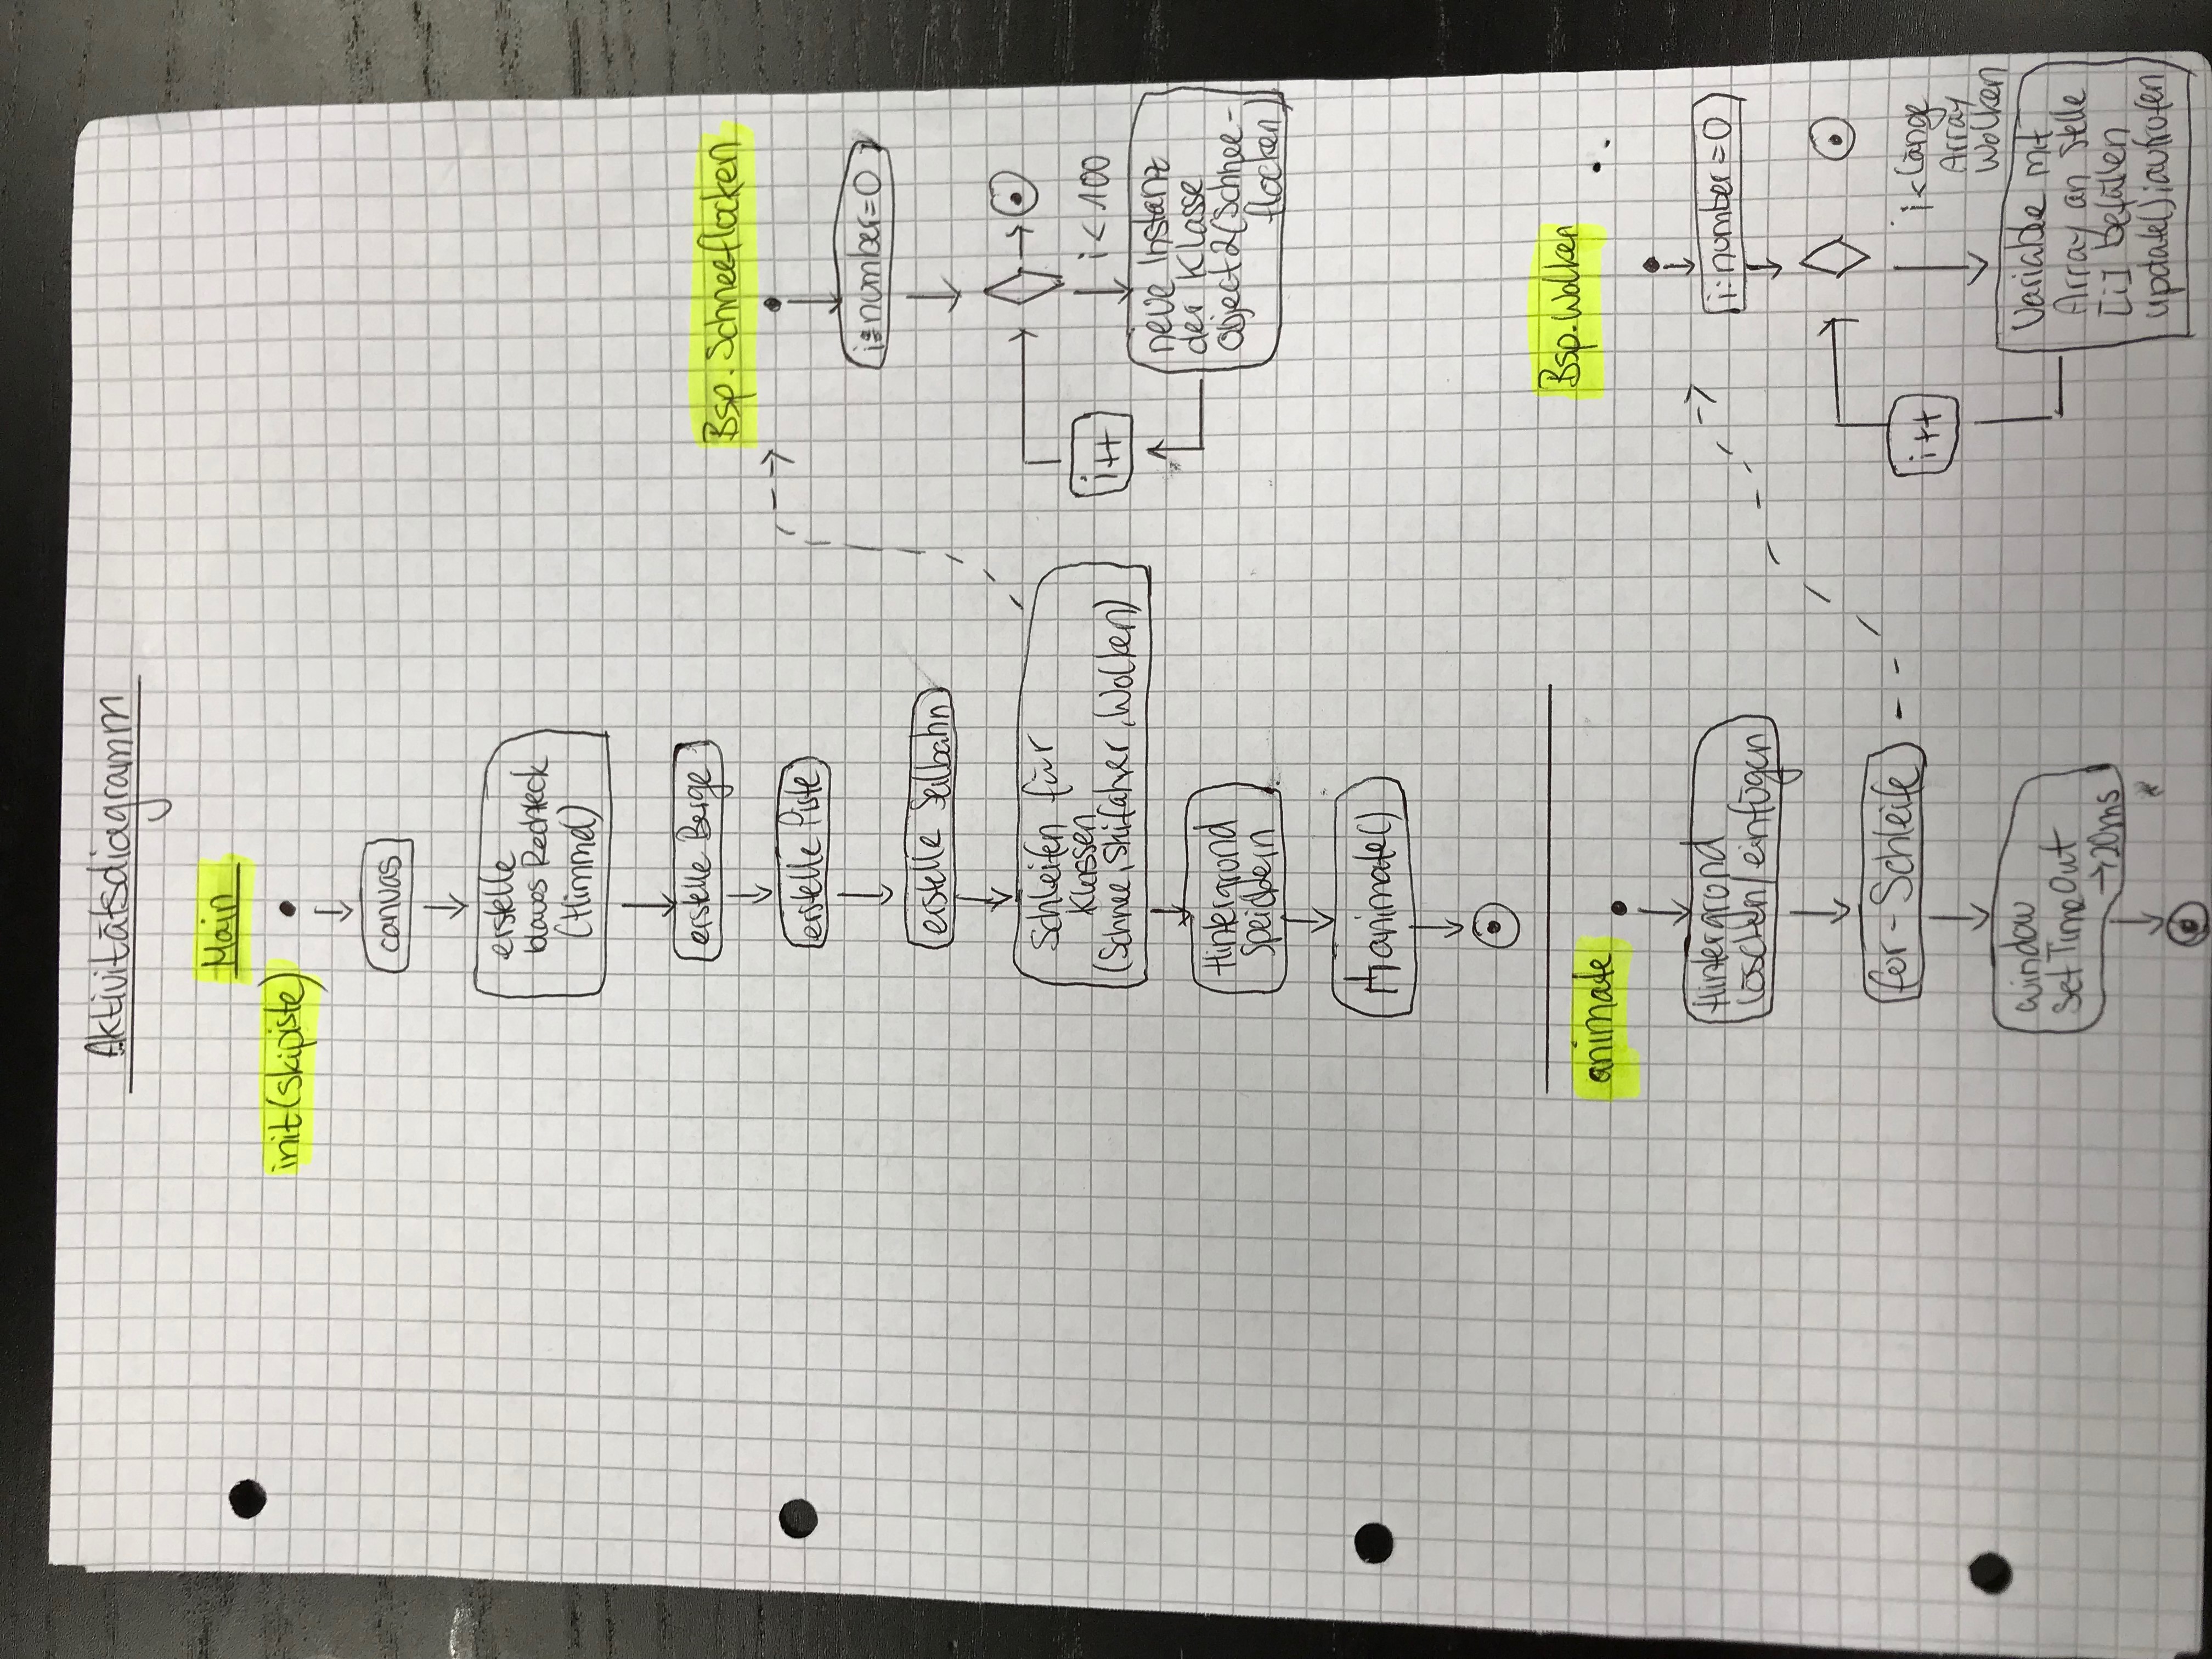 Aktivitätsdiagramm
Main
init(skipiste)
canvas
erstelle
blaues Rechteck
(Himmel)
erstelle Berge
erstelle Piste
erstelle Seilbahn
Schleifen für
Klassen
(Schnee, Skifahrer, Wolken)
Hintergrund
speichern
animate()
Bsp. Schneeflocken
i:number=0
i<100
i++
neue Instanz
der Klasse
Object2(Schnee-
flocken)
animate
Hintergrund
löschen/einfügen
for-Schleife
window
SetTimeOut
→20ms
Bsp. Wolken
i:number=0
i<Länge
Array
Wolken
i++
Variable mit
Array an Stelle
[i] befüllen
update();aufrufen